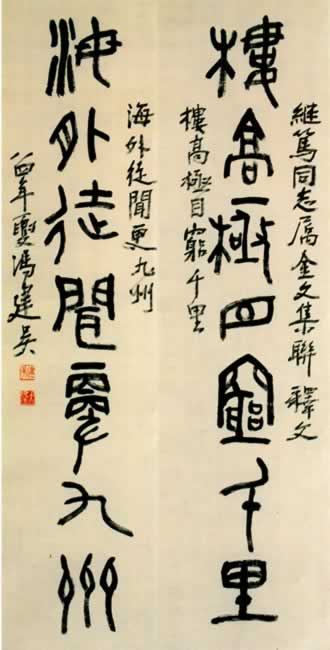 維篤同志属金文集聯釋文
樓高極目窮千里
樓高極目窮千里
海外徒聞更九州
海外徒聞更九州
八四年夏馮建吳